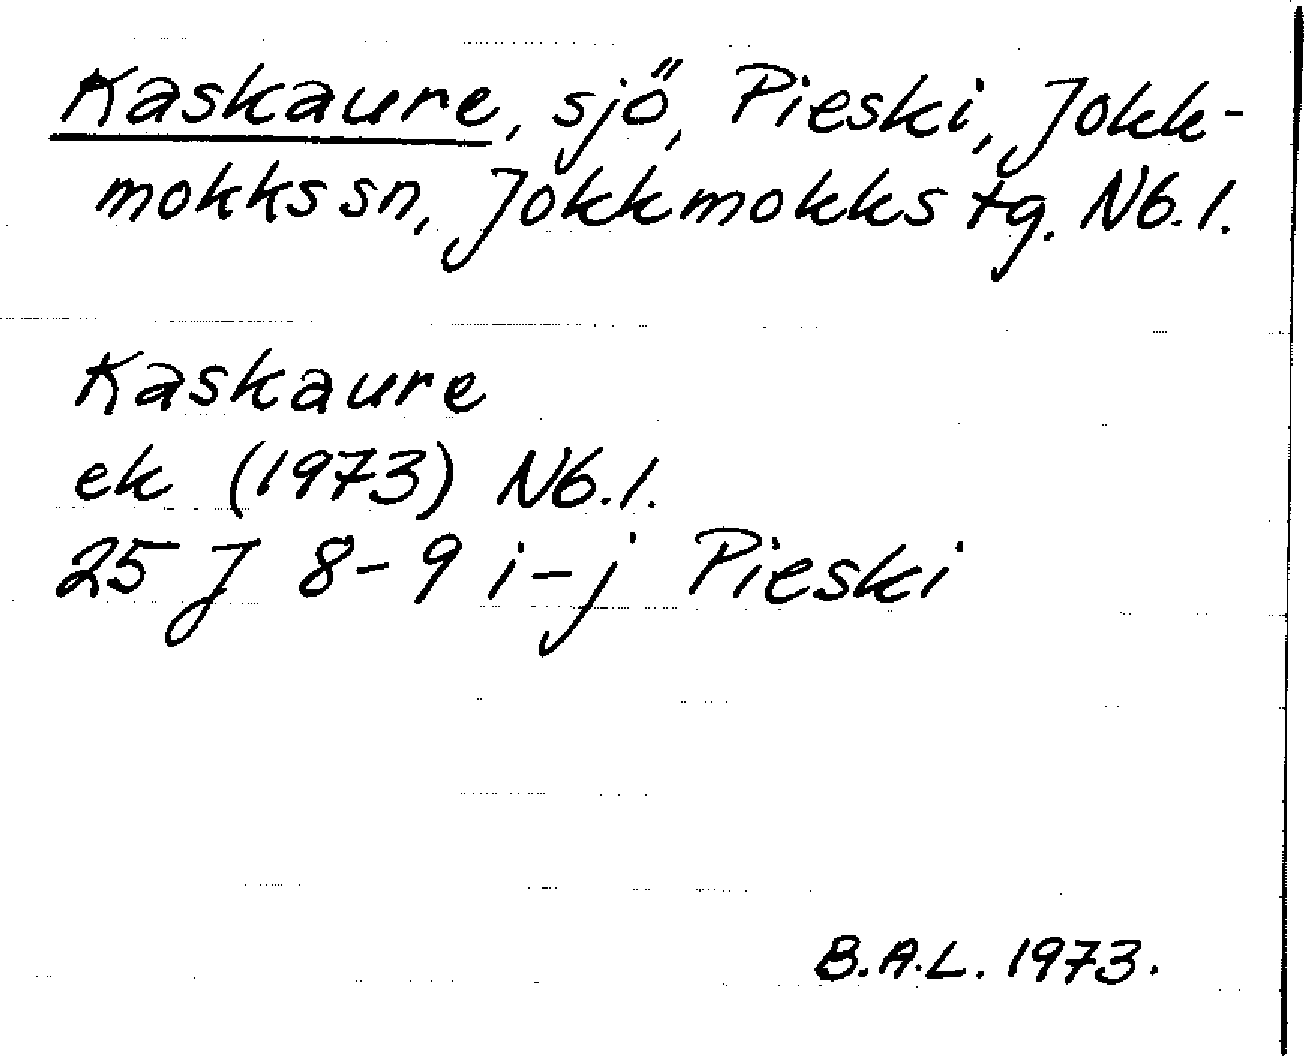 Kaskaure, sjö, Pieski, Jokk-
mokks sn, Jokkmokks tg. Nb.l.
Kaskaure
ek (1973) Nb.l.
25 J 8-9 i-j Pieski
B.A.L. 1973.